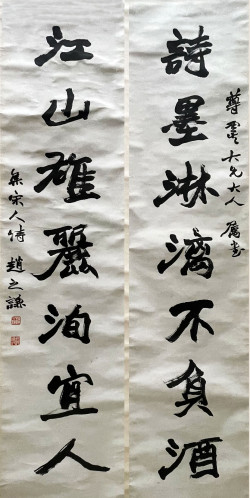 尊雲大兄大人 屬書
詩墨淋漓不負酒
江山雄麗洵宜人
集宋人詩 趙之謙